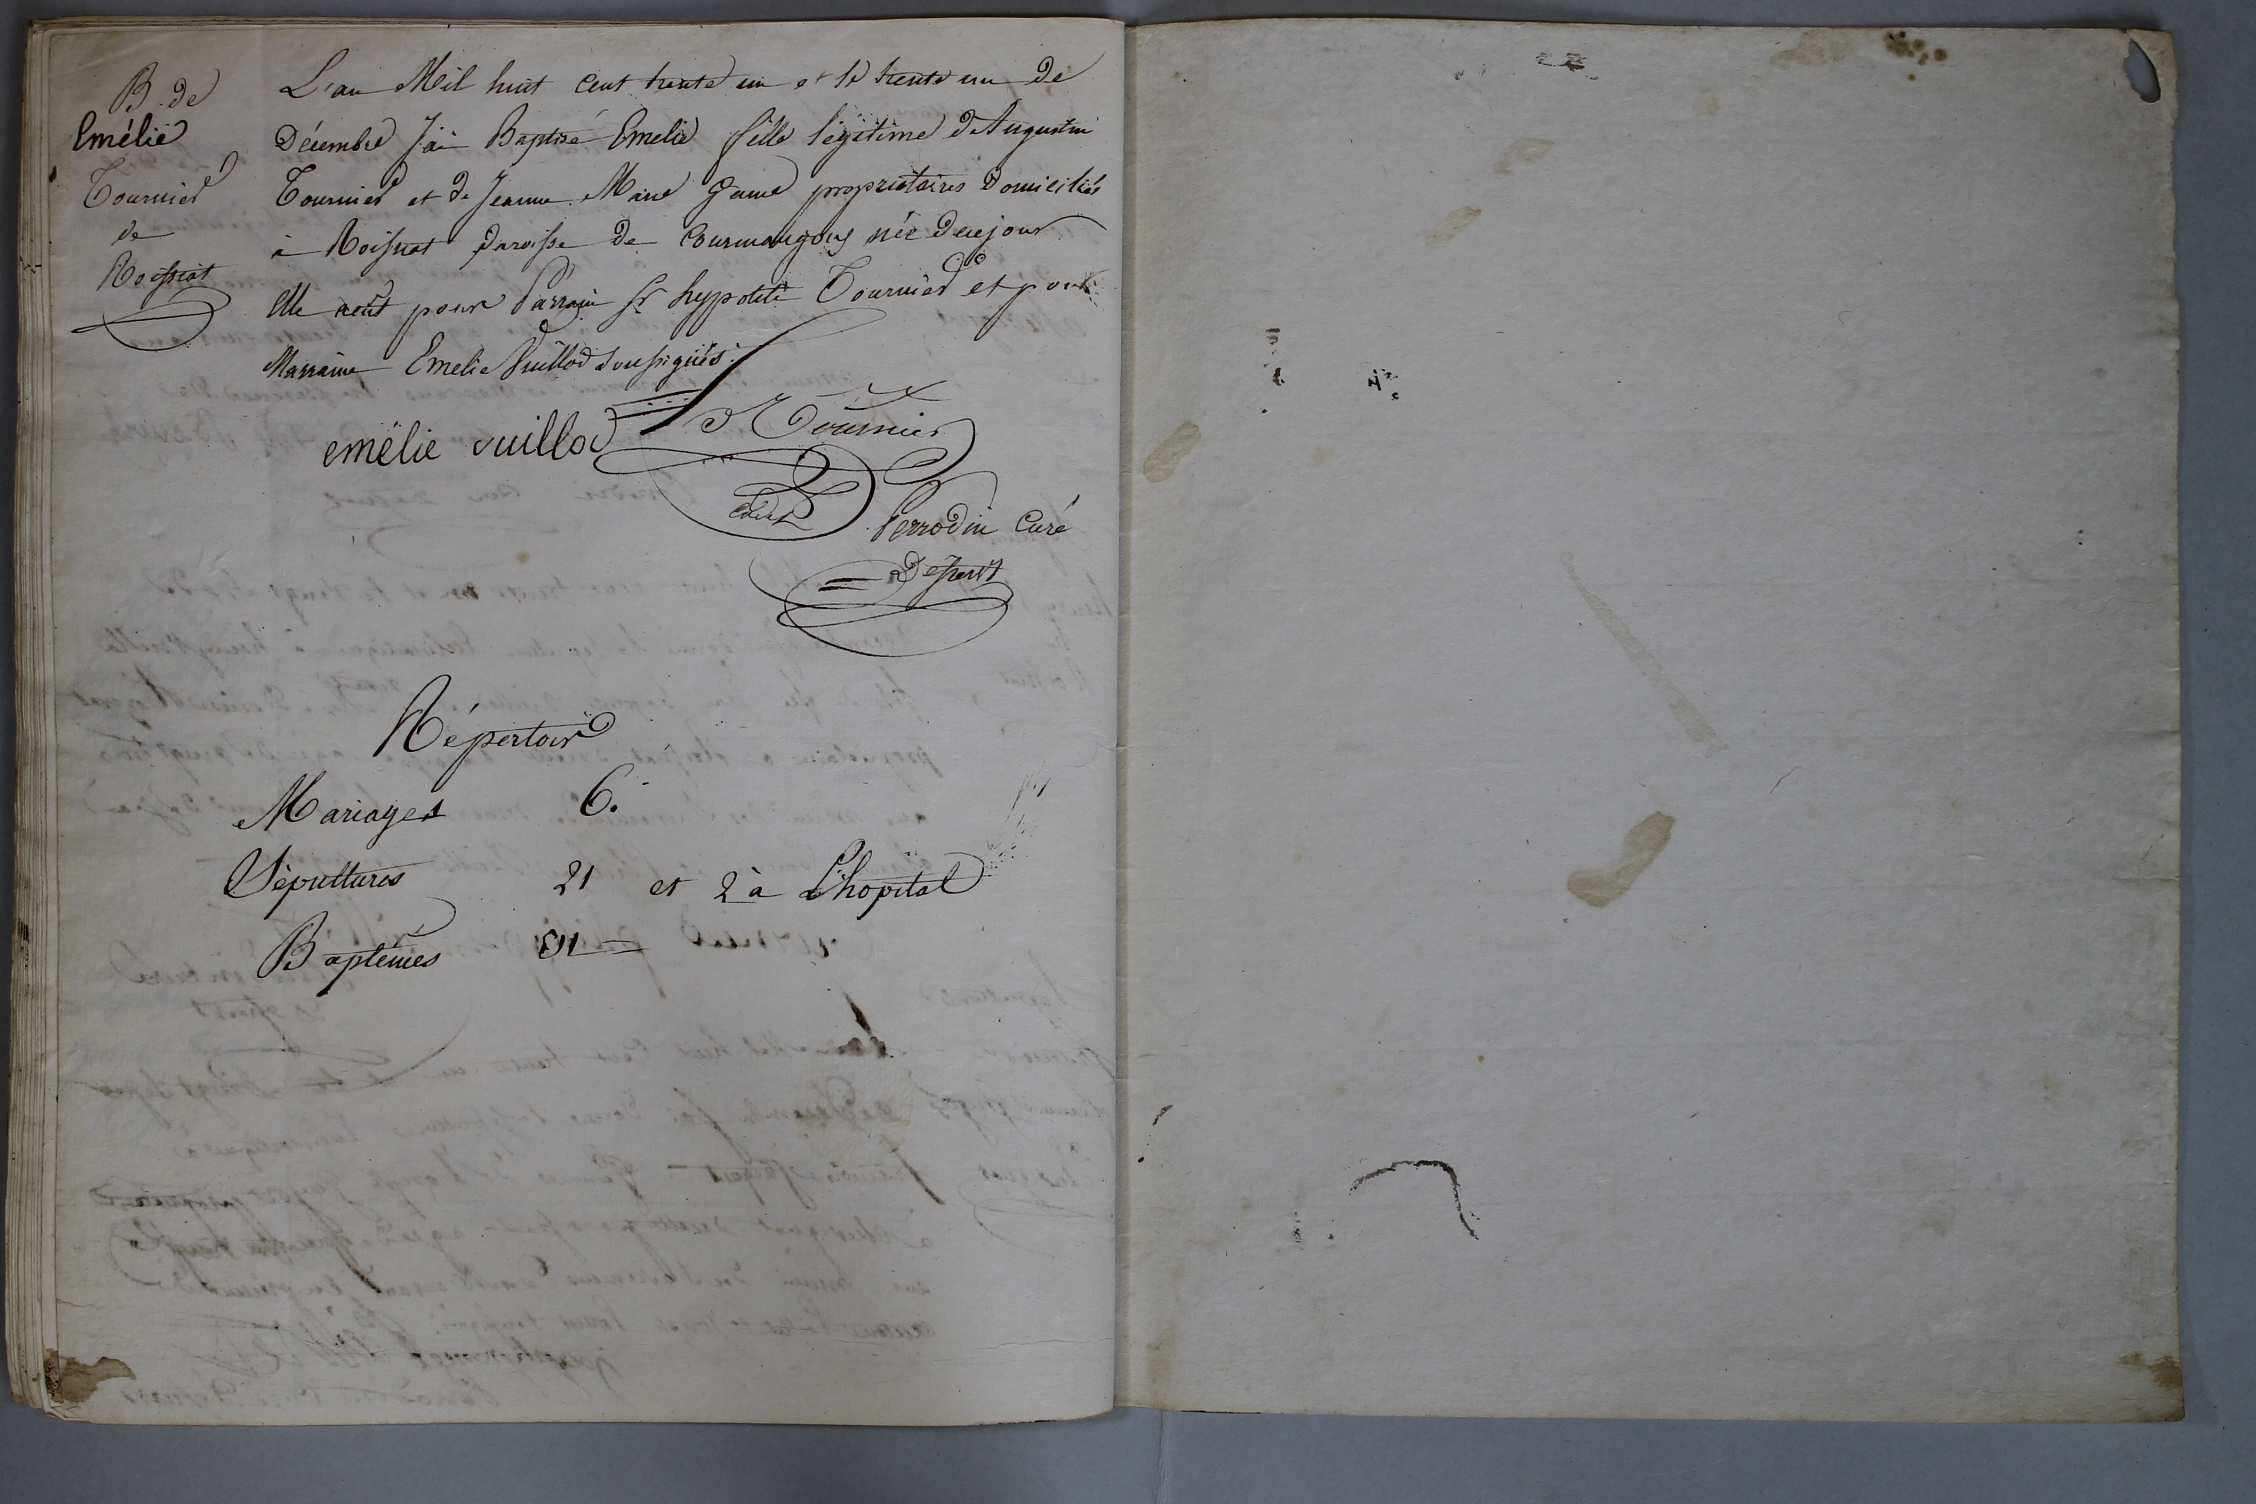 B. de
Emélie
Tournier
de
Roissiat
L'an Mil huit cent trente un et le trente un de
Décembre J'ai Baptisé Emelie fille légitime d'Augustin
Tournier et de Jeanne Marie Game propriétaires Domiciliés
à Roissiat paroisse de Courmangoux née de ce jour
elle a eut pour Parrain Sr hypolite Tournier et pour
Marraine Emelie Vuillod Soussignés.
emëlie vuillod
Tournier
Perrodin Curé
Desservt
Répertoire
Mariages 6.
Sépultures 21 et 2 à L'hopital
Baptêmes 31